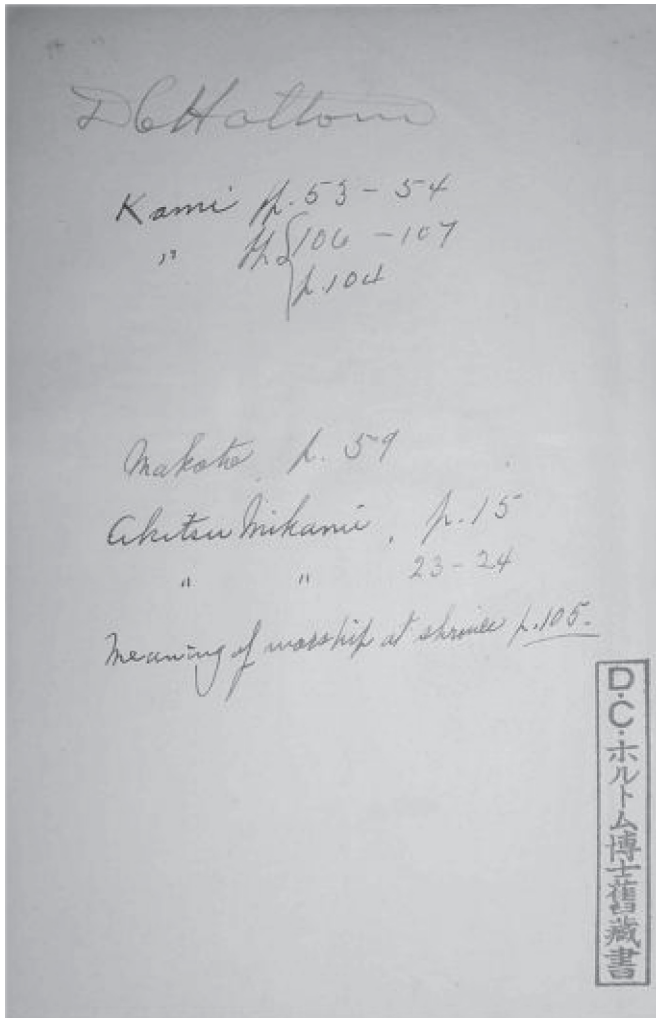 D C Holtom
Kami pp. 53 - 54
" pp. 106 - 107
p. 104
Makoto, p. 59
Akitsu Mikami, p. 15
" " 23 - 24
Meaning of worship at shrines p. 105.
D.C.ホルトム博士舊藏書